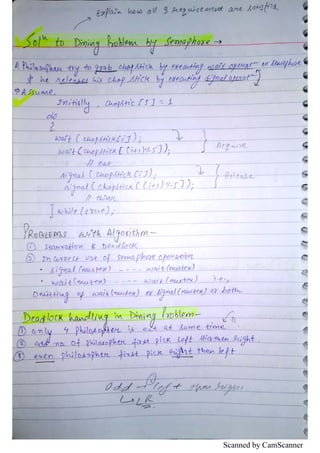 Explain how all 3 requirement are satisfied.
Solⁿ to Dining Problem by Semaphore →
A Philosopher try to grab chopstick by executing wait operatⁿ on Semaphore
& he releases his chop stick by executing signal operatⁿ
⇒ Assume,
Initially, chopstic [I] = 1
do
{
wait (chopstick[i]);
wait (chopstick [(i+1)%5]);
Acquire
// eat
signal (chopstick[i]);
signal (chopstick [(i+1)%5]);
Release
// think
} while (true);
PROBLEMS with Algorithm—
① Starvation & Deadlock
② Incorrect use of Semaphore operation
• signal (mutex) ---- wait (mutex)
• wait (mutex) ---- wait (mutex) i.e.,
Omitting of wait (mutex) or signal (mutex) or both
Deadlock handling in Dining Problem—
① only 4 philosopher is eat at same time
② odd no. of philosopher first pick left then right.
③ even philosopher first pick right then left
Odd → left then right
L R
Scanned by CamScanner